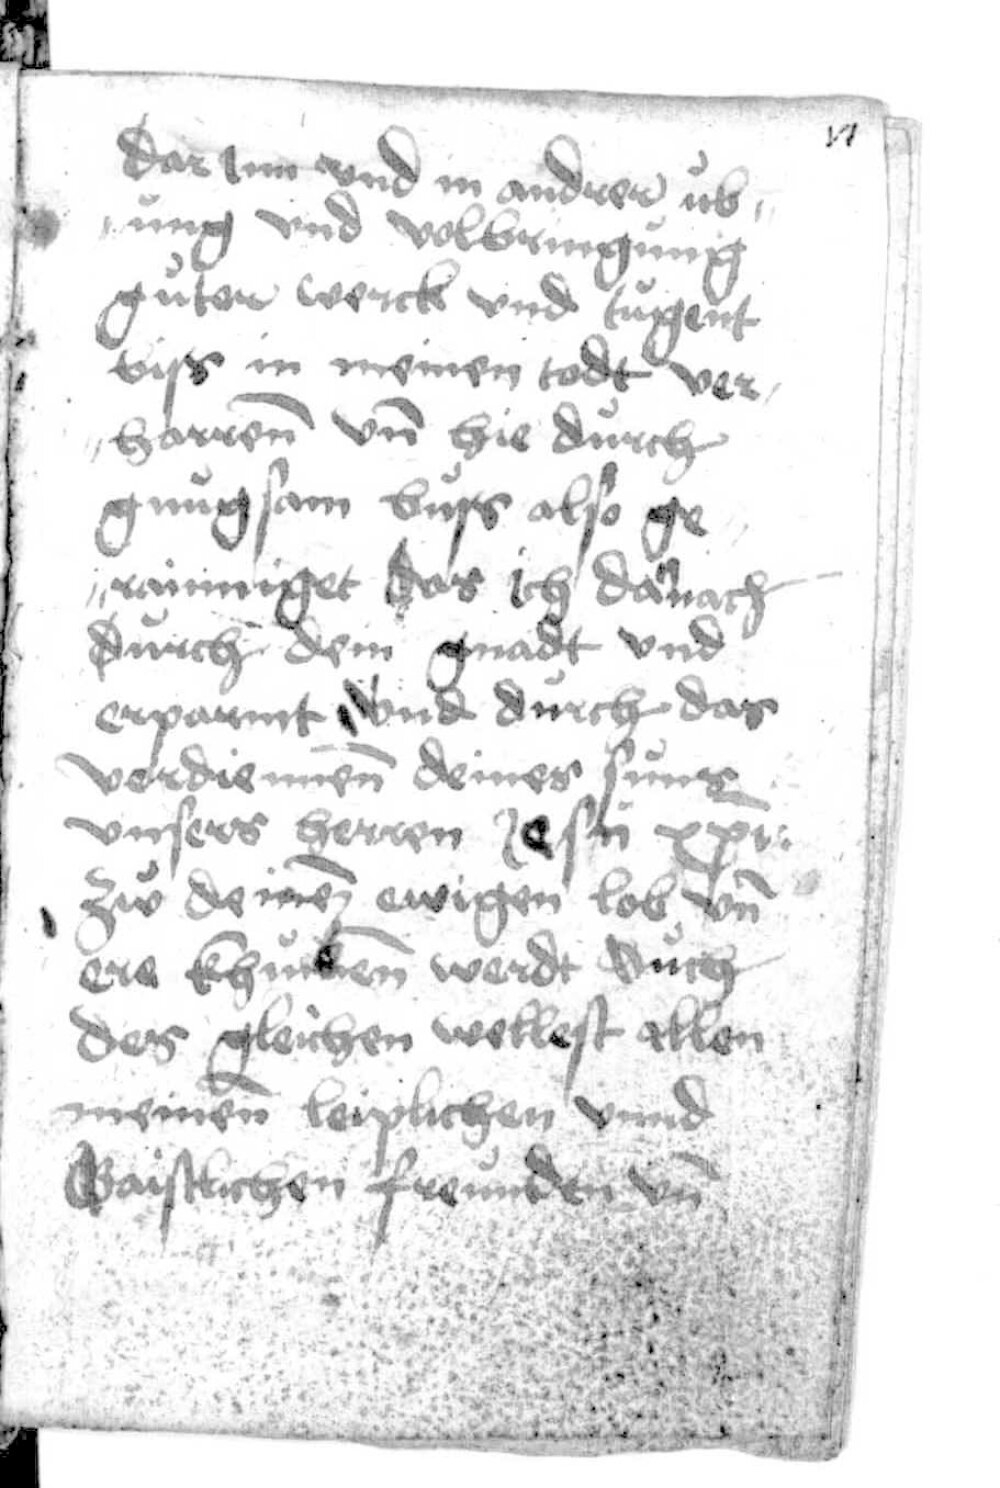 vi
dar Inn vnd in andrer üb„
„ung vnd volbringung
guter werck vnd tugent
biss in meinen todt ver„
„harren̄ vn̄ hie durch
gnugsam buss also ge„
„rainniget das ich danach
durch dein gnadt vnd
erparmt vnd durch das
verdiennen̄ deines suns
vnsers herren Jesu xp̄i.
zw deinen ewigen lob vn̄
ere khumen̄ werdt Auch
des gleichen wellest allen
meinen̄ leiplichen vnnd
Gaistlichen freunden vn̄